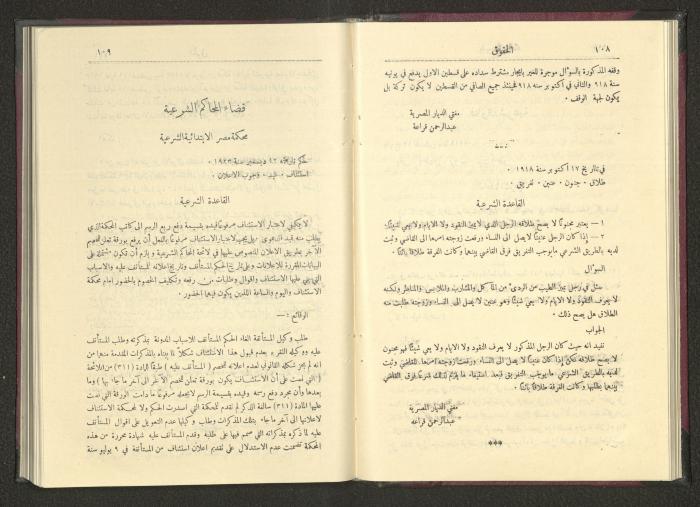 ١٠٨
الحقوق
وقفه المذكورة بالسؤال موجرة للغير بايجار مشترط سداده على قسطين الاول يدفع في يونيه
سنة ٩١٨ والثاني في اكتوبر سنة ٩١٨ فحينئذ جميع الصافي من القسطين لا يكون تركة بل
يكون لجهة الوقف .
مفتي الديار المصرية
عبدالرحمن قراعة
في تاريخ ١٧ اكتوبر سنة ١٩١٨
طلاق . جنون . عنين . تفريق .
القاعدة الشرعية
١ — يعتبر مجنونًا لا يصح طلاقه الرجل الذي لا يميز النقود ولا الايام ولا يعي شيئًا
٢ — إذا كان الرجل عنينًا لا يصل الى النساء ورفعت زوجته امرها الى القاضي وثبت
لديه بالطريق الشرعي مايوجب التفريق فرق القاضي بينهما وكانت الفرقة طلاقًا بائنًا .
السؤال
سئل في رجل يميز الطيب من الردئ من المأكل والمشارب والملابس والمناظر ولكنه
لا يعرف النقود ولا الايام ولا يعي شيئًا وهو عنين لا يصل الى النساء وزوجته طلبت منه
الطلاق هل يصح ذلك .
الجواب
نفيد انه حيث كان الرجل المذكور لا يعرف النقود ولا الايام ولا يعي شيئًا فهو مجنون
لا يصح طلاقه لكن إذا كان عنينًا لا يصل الى النساء ورفعت زوجته امرها للقاضي وثبت
لديه بالطريق الشرعي مايوجب التفريق بعد استيفاء ما يلزم لذلك شرعًا فرق القاضي
بينهما بطلبها وكانت الفرقة طلاقًا بائنًا .
مفتي الديار المصرية
عبدالرحمن قراعه
***
١٠٩
قضاء المحاكم الشرعية
محكمة مصر الابتدائية الشرعية
حكم تاريخه ٢٤ ديسمبر سنة ١٩٢٣ .
استئناف . قيد . وجوب الاعلان .
القاعدة الشرعية
لا يكفي لاعتبار الاستئناف مرفوعًا قيده بقسيمة دفع ربع الرسم الى كاتب المحكمة الذي
يطلب منه قيد الدعوى بل يجب لاعتبار الاستئناف مرفوعًا بالفعل أن يرفع بورقة تعلن للخصم
الآخر بطريق الاعلان المنصوص عليها في لائحة المحاكم الشرعية ويلزم أن تكون مشتملة على
البيانات المقررة للاعلانات وعلى تاريخ الحكم المستأنف وتاريخ اعلانه للمستأنف عليه والاسباب
التي بني عليها الاستئناف واقوال وطلبات من رفعه وتكليف الخصوم بالحضور امام محكمة
الاستئناف واليوم والساعة اللذين يكون فيهما الحضور .
الوقائع : —
طلب وكيل المستأنفة الغاء الحكم المستأنف للاسباب المدونة بمذكرته وطلب المستأنف
عليه ووكيله التقرير بعدم قبول هذا الاستئناف شكلًا لما بيناه بالمذكرات المقدمة منهما من
انه لم يحز شكله القانوني لعدم اعلانه للخصم ( المستأنف عليه ) طبقًا للمادة (٣١١) من اللائحة
( التي نصت على أن الاستئناف يكون بورقة تعلن للخصم الآخر الى آخر ما جاء بها ) وما
بعدها وأن مجرد دفع رسمه وقيده بقسيمة الرسم لا يجعله مرفوعًا ما دامت الورقة التي نصت
عليها المادة (٣١١) سالفة الذكر لم تقدم للمحكمة التي اصدرت الحكم ولا لمحكمة الاستئناف
لاعلانها الى آخر ما جاء بتلك المذكرات وطلب وكيلها عدم التعويل على اقوال المستأنف
عليه لما ذكره بمذكراته التي صمم فيها على طلبه وقدم المستأنف عليه شهادة محررة من هذه
المحكمة تضمنت عدم الاستدلال على تقديم اعلان استئناف من المستأنفة في ٩ يوليو سنة